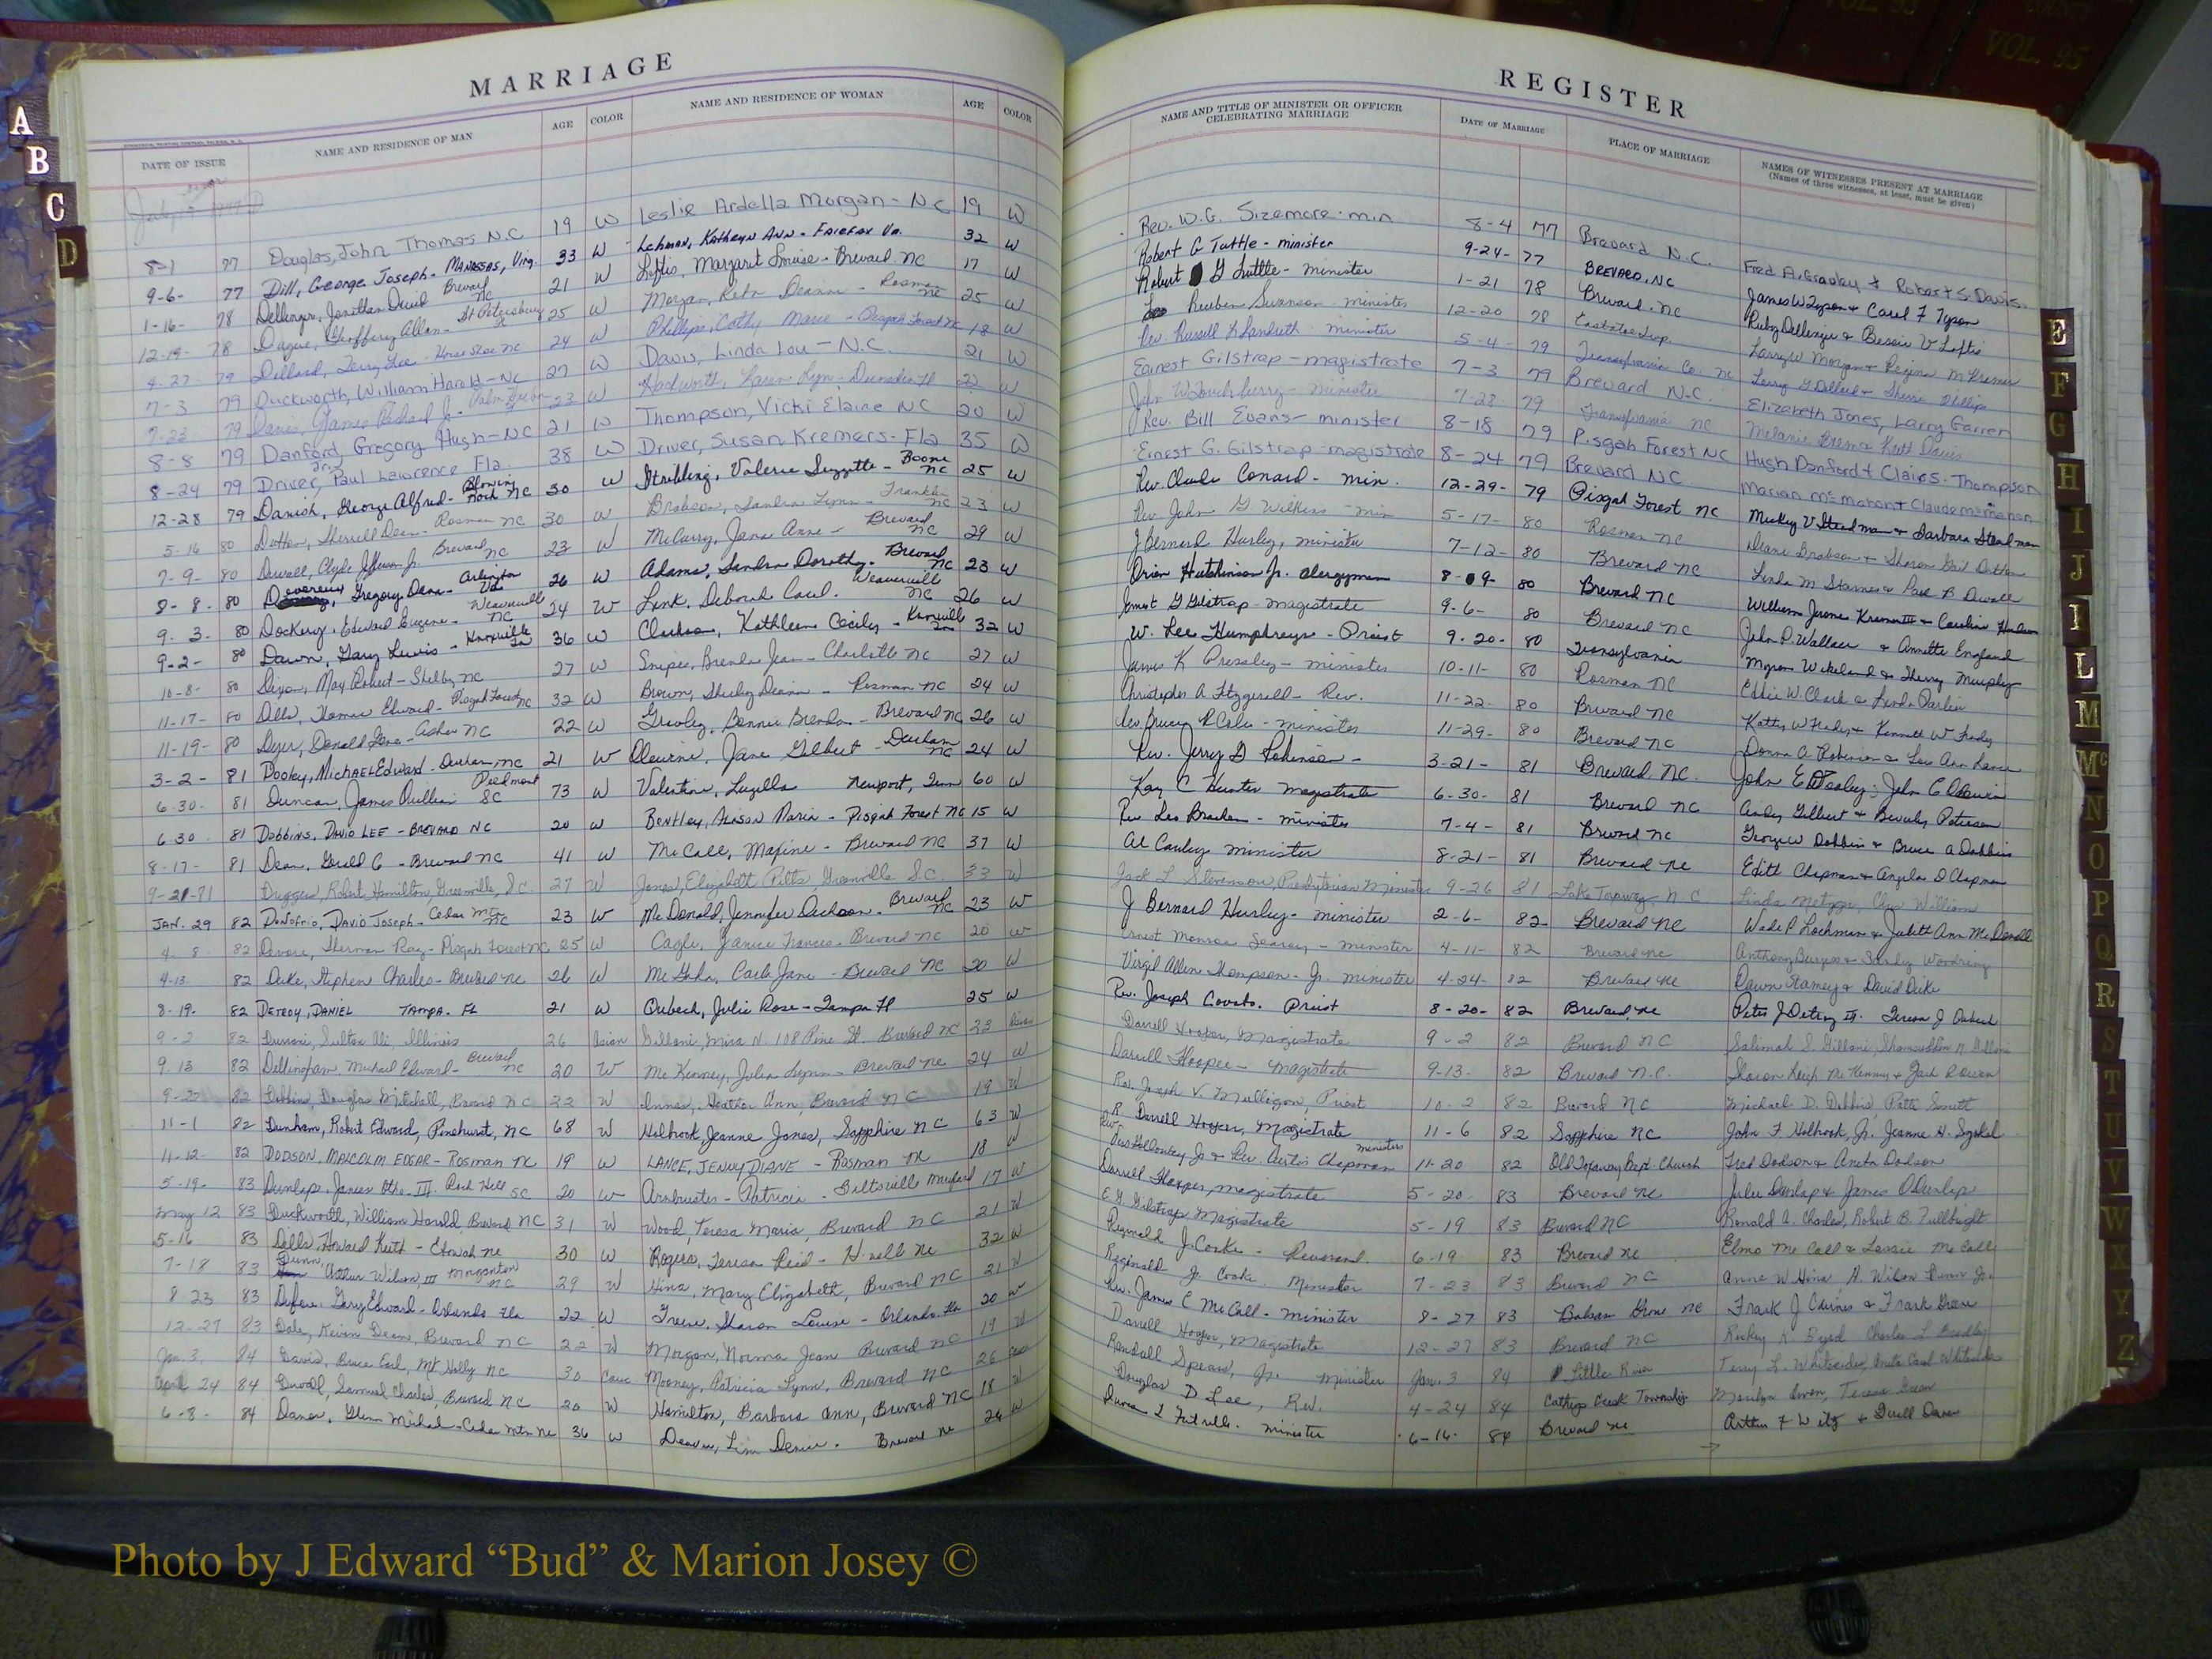 MARRIAGE
DATE OF ISSUE NAME AND RESIDENCE OF MAN AGE COLOR NAME AND RESIDENCE OF WOMAN AGE COLOR
8-1 77 Douglas, John Thomas N.C 19 W Leslie Ardella Morgan - NC 19 W
9-6- 77 Dill, George Joseph - Manassas, Virg. 33 W Lehman, Kathryn Ann - Fairfax Va. 32 W
1-16- 78 Dellinger, Jonathan David Brevard NC 21 W Loftis, Margaret Louise - Brevard NC 17 W
12-19- 78 Allan - St Petersburg 25 W Morgan, Reta Deanne - Rosman NC 25 W
4-27- 79 Dillard, Terry Lee - Horse Shoe NC 24 W Phillips, Cathy Marie - Pisgah Forest NC 18 W
7-3 79 Duckworth, William Harold - NC 27 W Davis, Linda Lou - N.C. 21 W
7-23 79 Davis, James Richard Jr - 23 W Karen Lyn - Dunedin Fl 22 W
8-8 79 Danford, Gregory Hugh - NC 21 W Thompson, Vicki Elaine NC 20 W
8-24 79 Driver, Paul Lawrence - Fla. 38 W Driver, Susan Kremers - Fla 35 W
12-28 79 Danish, George Alfred - Blowing Rock NC 30 W Stribling, Valerie Suzzette - Boone NC 25 W
5-16 80 Dutton, Sherrill Dean - Rosman NC 30 W Brabson, Sandra Lynn - Franklin NC 23 W
7-9- 80 Duvall, Clyde Jefferson Jr. Brevard NC 23 W McCurry, Jana Anne - Brevard NC 29 W
8-8- 80 Devereux, Gregory Dana - Arlington Va 26 W Adams, Sandra Dorothy - Brevard NC 23 W
9-3- 80 Dockery, Edward Eugene - Weaverville NC 24 W Link, Deborah Carol. Weaverville NC 26 W
9-2- 80 Dawn, Gary Lewis - Knoxville Tn 36 W Clarkson, Kathleen Cecily - Knoxville Tn 32 W
10-8- 80 Dixon, Max Robert - Shelby NC 27 W Snipes, Brenda Jean - Charlotte NC 27 W
11-17- 80 Dills, Thomas Edward - Pisgah Forest NC 32 W Brown, Shirley Diann - Rosman NC 24 W
11-19- 80 Dyer, Donald Gene - Asher NC 22 W Gravley, Bonnie Brenda - Brevard NC 26 W
3-2- 81 Dooley, Michael Edward - Durham, NC 21 W Jane Gilbert - Durham NC 24 W
6-30- 81 Duncan, James Pullian Piedmont SC 73 W Valentine, Luzella Newport, Tenn 60 W
6-30 81 Dobbins, David Lee - Brevard NC 20 W Bentley, Alison Maria - Pisgah Forest NC 15 W
8-17- 81 Dean, Gerald C - Brevard NC 41 W McCall, Maxine - Brevard NC 37 W
9-21-81 Robert Hamilton, Greenville, S.C. 27 W Jones, Elizabeth Pitts, Greenville S.C. 33 W
Jan. 29 82 Donofrio, David Joseph - Cedar Mtn NC 23 W McDonald, Jennifer Dickson - Brevard NC 23 W
4-8- 82 Devore, Sherman Ray - Pisgah Forest NC 25 W Cagle, Janice Frances - Brevard NC 20 W
4-13 82 Duke, Stephen Charles - Brevard NC 26 W McGaha, Carla Jane - Brevard NC 20 W
8-19- 82 Detroy, Daniel Tampa, FL 21 W Julie Rose - Tampa Fl 25 W
9-2 82 Durrani, Sultan Ali, Illinois 26 Asian Gillani, Mira N. 108 Pine St. Brevard NC 23 Asian
9-13 82 Dillingham, Michael Edward - Brevard NC 20 W McKinney, Julia Lynn - Brevard NC 24 W
9-27 82 Dobbins, Douglas Mitchell, Brevard NC 22 W Innes, Heather Ann, Brevard NC 19 W
11-1 82 Dunham, Robert Edward, Pinehurst, NC 68 W Holbrook, Jeanne Jones, Sapphire NC 63 W
11-12- 82 Dodson, Malcolm Edgar - Rosman NC 19 W Lance, Jenny Diane - Rosman NC 18 W
5-19- 83 Dunlap, James Otho III. Rock Hill SC 20 W Armbruster - Patricia - Beltsville Maryland 17 W
May 12 83 Duckworth, William Harold Brevard NC 31 W Wood, Teresa Maria, Brevard NC 21 W
5-16 83 Dills, Howard Keith - Etowah NC 30 W Rogers, Teresa Reid - H-ville NC 32 W
7-18 83 Dunn, Arthur Wilson III Morganton NC 29 W Hina, Mary Elizabeth, Brevard NC 21 W
8-23 83 Gary Edward - Orlando Fla 22 W Greene, Sharon Louise - Orlando, Fla 20 W
12-27 83 Dale, Kevin Dean, Brevard NC 22 W Morgan, Norma Jean Brevard NC 19 W
Jan. 3, 84 David, Bruce Earl, Mt. Holly NC 30 Cauc Mooney, Patricia Lynn, Brevard NC 26 Cauc
April 24 84 Duvall, Samuel Charles, Brevard NC 20 W Hamilton, Barbara Ann, Brevard NC 18 W
6-8- 84 Glenn Michael - Cedar Mtn NC 36 W Deaver, Lisa Denise. Brevard NC 24 W
REGISTER
NAME AND TITLE OF MINISTER OR OFFICER CELEBRATING MARRIAGE DATE OF MARRIAGE PLACE OF MARRIAGE NAMES OF WITNESSES PRESENT AT MARRIAGE
(Names of three witnesses, at least, must be given)
Rev. W.G. Sizemore - min 8-4 77 Brevard N.C. Fred A. Grooley & Robert S. Davis
Robert G Tuttle - minister 9-24- 77 Brevard, NC James W Tyson & Carol F Tyson
Robert G Tuttle - minister 1-21 78 Brevard, NC Ruby Dellinger & Bessie V Loftis
Reuben Swanson - minister 12-20 78 Eastatoe Twp Larry W Morgan & Regina M Kremer
Rev. Russell minister 5-4- 79 Transylvania Co. NC Larry G Dillard & Sherri Phillips
Earnest Gilstrap - magistrate 7-3 79 Brevard N.C. Elizabeth Jones, Larry Garren
John W - minister 7-28- 79 Transylvania NC Melanie Keith Davis
Rev. Bill Evans - minister 8-18 79 Pisgah Forest NC Hugh Danford & Claire S. Thompson
Ernest G. Gilstrap - magistrate 8-24 79 Brevard NC Marian McMahan & Claude McMahan
Rev Claude Conard - min. 12-29- 79 Pisgah Forest NC Mickey V Steadman & Barbara Steadman
Rev John G Wilkins - min 5-17- 80 Rosman NC Diane Brabson & Sharon Gail Dutton
J Bernard Hurley, minister 7-12- 80 Brevard NC Linda M Starnes & Paul B Duvall
Orion Hutchinson Jr. Clergyman 8-9- 80 Brevard NC William Jerome III & Caroline
Ernest G Gilstrap - magistrate 9-6- 80 Brevard NC John P. Wallace & Annette England
W. Lee Humphreys - Priest 9-20- 80 Transylvania Myron Wikeland & Sherry Murphy
James K Pressley - minister 10-11- 80 Rosman NC Eddie W. Clark & Linda Parlier
Christopher A Fitzgerald - Rev. 11-22- 80 Brevard NC Kathy W Frady & Kenneth W Frady
Rev Bruce P Cole - minister 11-29- 80 Brevard NC Donna A Robinson & Lois Ann Lance
Rev. Jerry D Robinson - 3-21- 81 Brevard NC. John E Dooley; John C
Kay C Hunter Magistrate 6-30- 81 Brevard NC Andy Gilbert & Beverly Peterson
Rev Leo Bracken - minister 7-4- 81 Brevard NC George W Dobbins & Bruce A Dobbins
Al Cauley minister 8-21- 81 Brevard NC Edith Chapman & Angela D Chapman
Jack L Stevenson, Presbyterian Minister 9-26 81 Lake Toxaway NC Linda Metzger, William
J Bernard Hurley - minister 2-6- 82 Brevard NC Wade P Lochman & Judith Ann McDonald
Ernest Monroe Searcy - minister 4-11- 82 Brevard NC Anthony Burgess & Sandy
Virgil Allen Thompson - Jr. minister 4-24- 82 Brevard NC Dawn Stamey & David Duke
Rev. Joseph Covato. Priest 8-20- 82 Brevard, NC Peter J Detroy III. Teresa J
Darrell Hooper, Magistrate 9-2 82 Brevard NC Salimah S. Gillani, N Gillani
Darrell Hooper - Magistrate 9-13- 82 Brevard N.C. Sharon Leigh McKinney & Jack D Owen
Rev. Joseph V. Mulligan, Priest 10-2 82 Brevard NC Michael D. Dobbins, Patte Smitt
R. Darrell Hooper, Magistrate 11-6 82 Sapphire NC John F Holbrook, Jr. Jeanne H.
Rev. Jr & Rev. Curtis Chapman ministers 11-20 82 Old Toxaway Bapt. Church Fred Dodson & Aneta Dodson
Darrell Hooper, magistrate 5-20- 83 Brevard NC Julie Dunlap & James O Dunlap
E G Gilstrap Magistrate 5-19 83 Brevard NC Ronald A. Charles, Robert B. Fullbright
Reginald J. Cooke - Reverend. 6-19- 83 Brevard NC Elmo McCall & Lessie McCall
Reginald J. Cooke. Minister 7-23 83 Brevard NC Anne W Hina A. Wilson Dunn Jr.
Rev. James C McCall - minister 8-27 83 Balsam Grove NC Frank J & Frank Greene
Darrell Hooper, Magistrate 12-27 83 Brevard NC Rickey R. Byrd Charles L Bradley
Randall Spears, Jr. minister Jan. 3 84 Little River Terry L. Whiteside, Anita Carol Whiteside
Douglas D Lee, Rev. 4-24 84 Cathys Creek Township Marilyn Owen, Teresa Green
minister 6-16- 84 Brevard NC Arthur F
A
B
C
D
E
F
G
H
I
J
I
L
M
Mc
N
O
P
Q
R
S
T
U
V
W
X
Y
Z
VOL. 95
Photo by J Edward “Bud” & Marion Josey ©